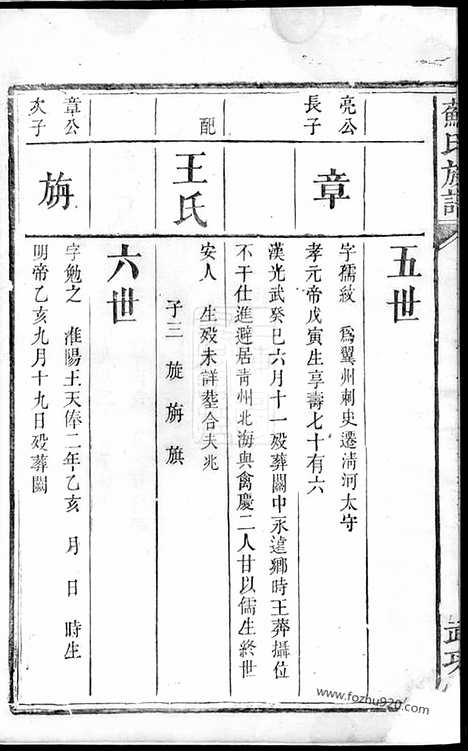 蘇氏族譜
五世
亮公長子
章
字孺紋 為翼州刺史遷淸河太守
孝元帝戊寅生享壽七十有六
漢光武癸巳六月十一殁葬關中永違鄉時王莽攝位
不干仕進避居青州北海與禽慶二人甘以儒生終世
配
王氏
安人 生殁未詳塟合夫兆
子三 旋 旃 旗
六世
章公次子
旃
字勉之 淮陽王天俸二年乙亥 月 日 時生
明帝乙亥九月十九日殁葬闗
武功
www.fozhu920.com